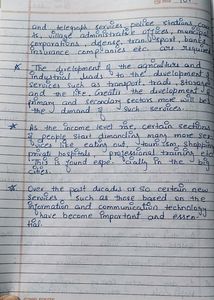 and telegraph services, police stations, courts
, village administrative offices, municipal
corporations, defense, transport, banks,
insurance companies etc. are required
The development of the agriculture and
industrial leads to the development of
services such as transport, trade, storage
and the like. Greater the development of
primary and secondary sectors more will be
the demand of such services.
As the income level rise, certain sections
of people start dimanding many more ser
vices like eating out, tourism, shopping
private hospitals, professional training etc.
This is found espe cially in the big
cities.
Over the past decades or so certain new
services such as those based on the
information and communication technology
have become important and essen-
tial.